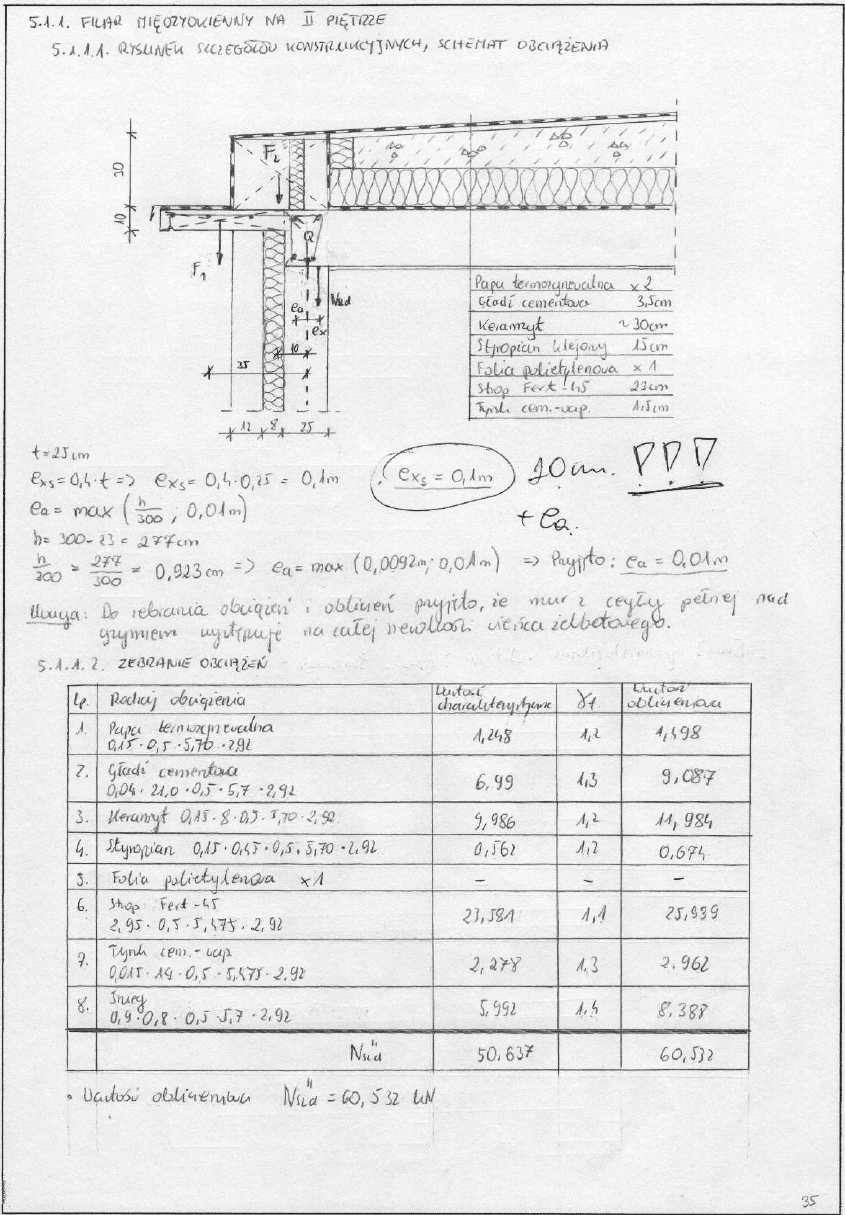 5.1.1. FILAR MIĘDZYOKIENNY NA II PIĘTRZE
5.1.1.1. RYSUNEK SZCZEGÓŁÓW KONSTRUKCYJNYCH, SCHEMAT OBCIĄŻENIA
30
10
F2
F1
Q
Nsłd
ea
ex
10
35
12 8 25
Papa termozgrzewalna x 2
Gładź cementowa 3,5cm
Keramzyt ~30cm
Styropian klejony 15cm
Folia polietylenowa x 1
Strop Fert-45 23cm
Tynk cem.-wap. 1,5cm
t=25cm
exs=0,4·t => exs=0,4·0,25 = 0,1m
exs = 0,1m
10cm.
+ ea.
ea = max (h/300 ; 0,01m)
h= 300-23 = 277cm
h/300 = 277/300 = 0,923cm => ea=max (0,0092m; 0,01m) => Przyjęto: ea = 0,01m
Uwaga: Do zebrania obciążeń i obliczeń przyjęto, że mur z cegły pełnej nad
gzymsem występuje na całej szerokości wieńca żelbetowego.
5.1.1.2. ZEBRANIE OBCIĄŻEŃ
Lp. Rodzaj obciążenia Wartość charakterystyczna γf Wartość obliczeniowa
1. Papa termozgrzewalna
0,15·0,5·5,70·2,92 1,248 1,2 1,498
2. Gładź cementowa
0,04·21,0·0,5·5,7·2,92 6,99 1,3 9,087
3. Keramzyt 0,15·8·0,5·5,70·2,92 9,986 1,2 11,984
4. Styropian 0,15·0,45·0,5·5,70·2,92 0,562 1,2 0,674
5. Folia polietylenowa x1 - - -
6. Strop Fert-45
2,95·0,5·5,475·2,92 23,581 1,1 25,939
7. Tynk cem.-wap.
0,015·19·0,5·5,475·2,92 2,278 1,3 2,962
8. Śnieg
0,9·0,8·0,5·5,7·2,92 5,992 1,4 8,388
Nsłd'' 50,637 60,532
• Wartość obliczeniowa Nsłd'' = 60,532 kN
35